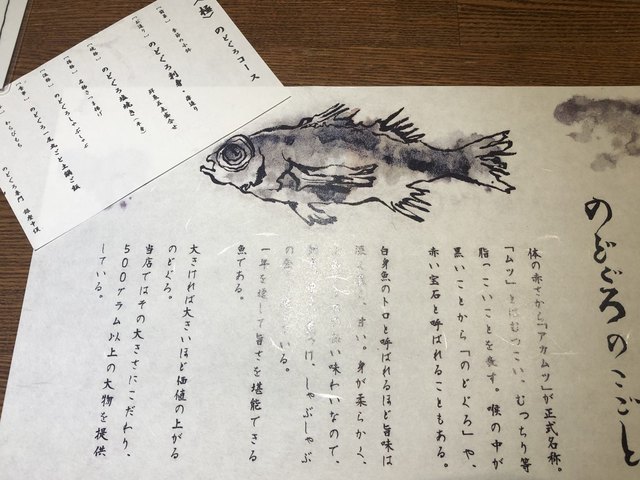 のどぐろのこごと
体の赤さから「アカムツ」が正式名称。
「ムツ」とはむつこい、むっちり等
脂っこいことを表す。喉の中が
黒いことから「のどぐろ」や、
赤い宝石と呼ばれることもある。
白身魚のトロと呼ばれるほど旨味は
甘い。身が柔らかく、
味わいなので、
しゃぶしゃぶ
いる。
一年を通して旨さを堪能できる
魚である。
大きければ大きいほど価値の上がる
のどぐろ。
当店ではその大きさにこだわり、
500グラム以上の大物を提供
している。
〈極〉
のどくろコース
季節の小鉢
のどくろ刺身
のどくろ塩焼き
のどくろしゃぶしゃぶ
のどくろ一尾丸ごと土鍋ご飯
わらびもち
のどくろ専門 銀座中俣